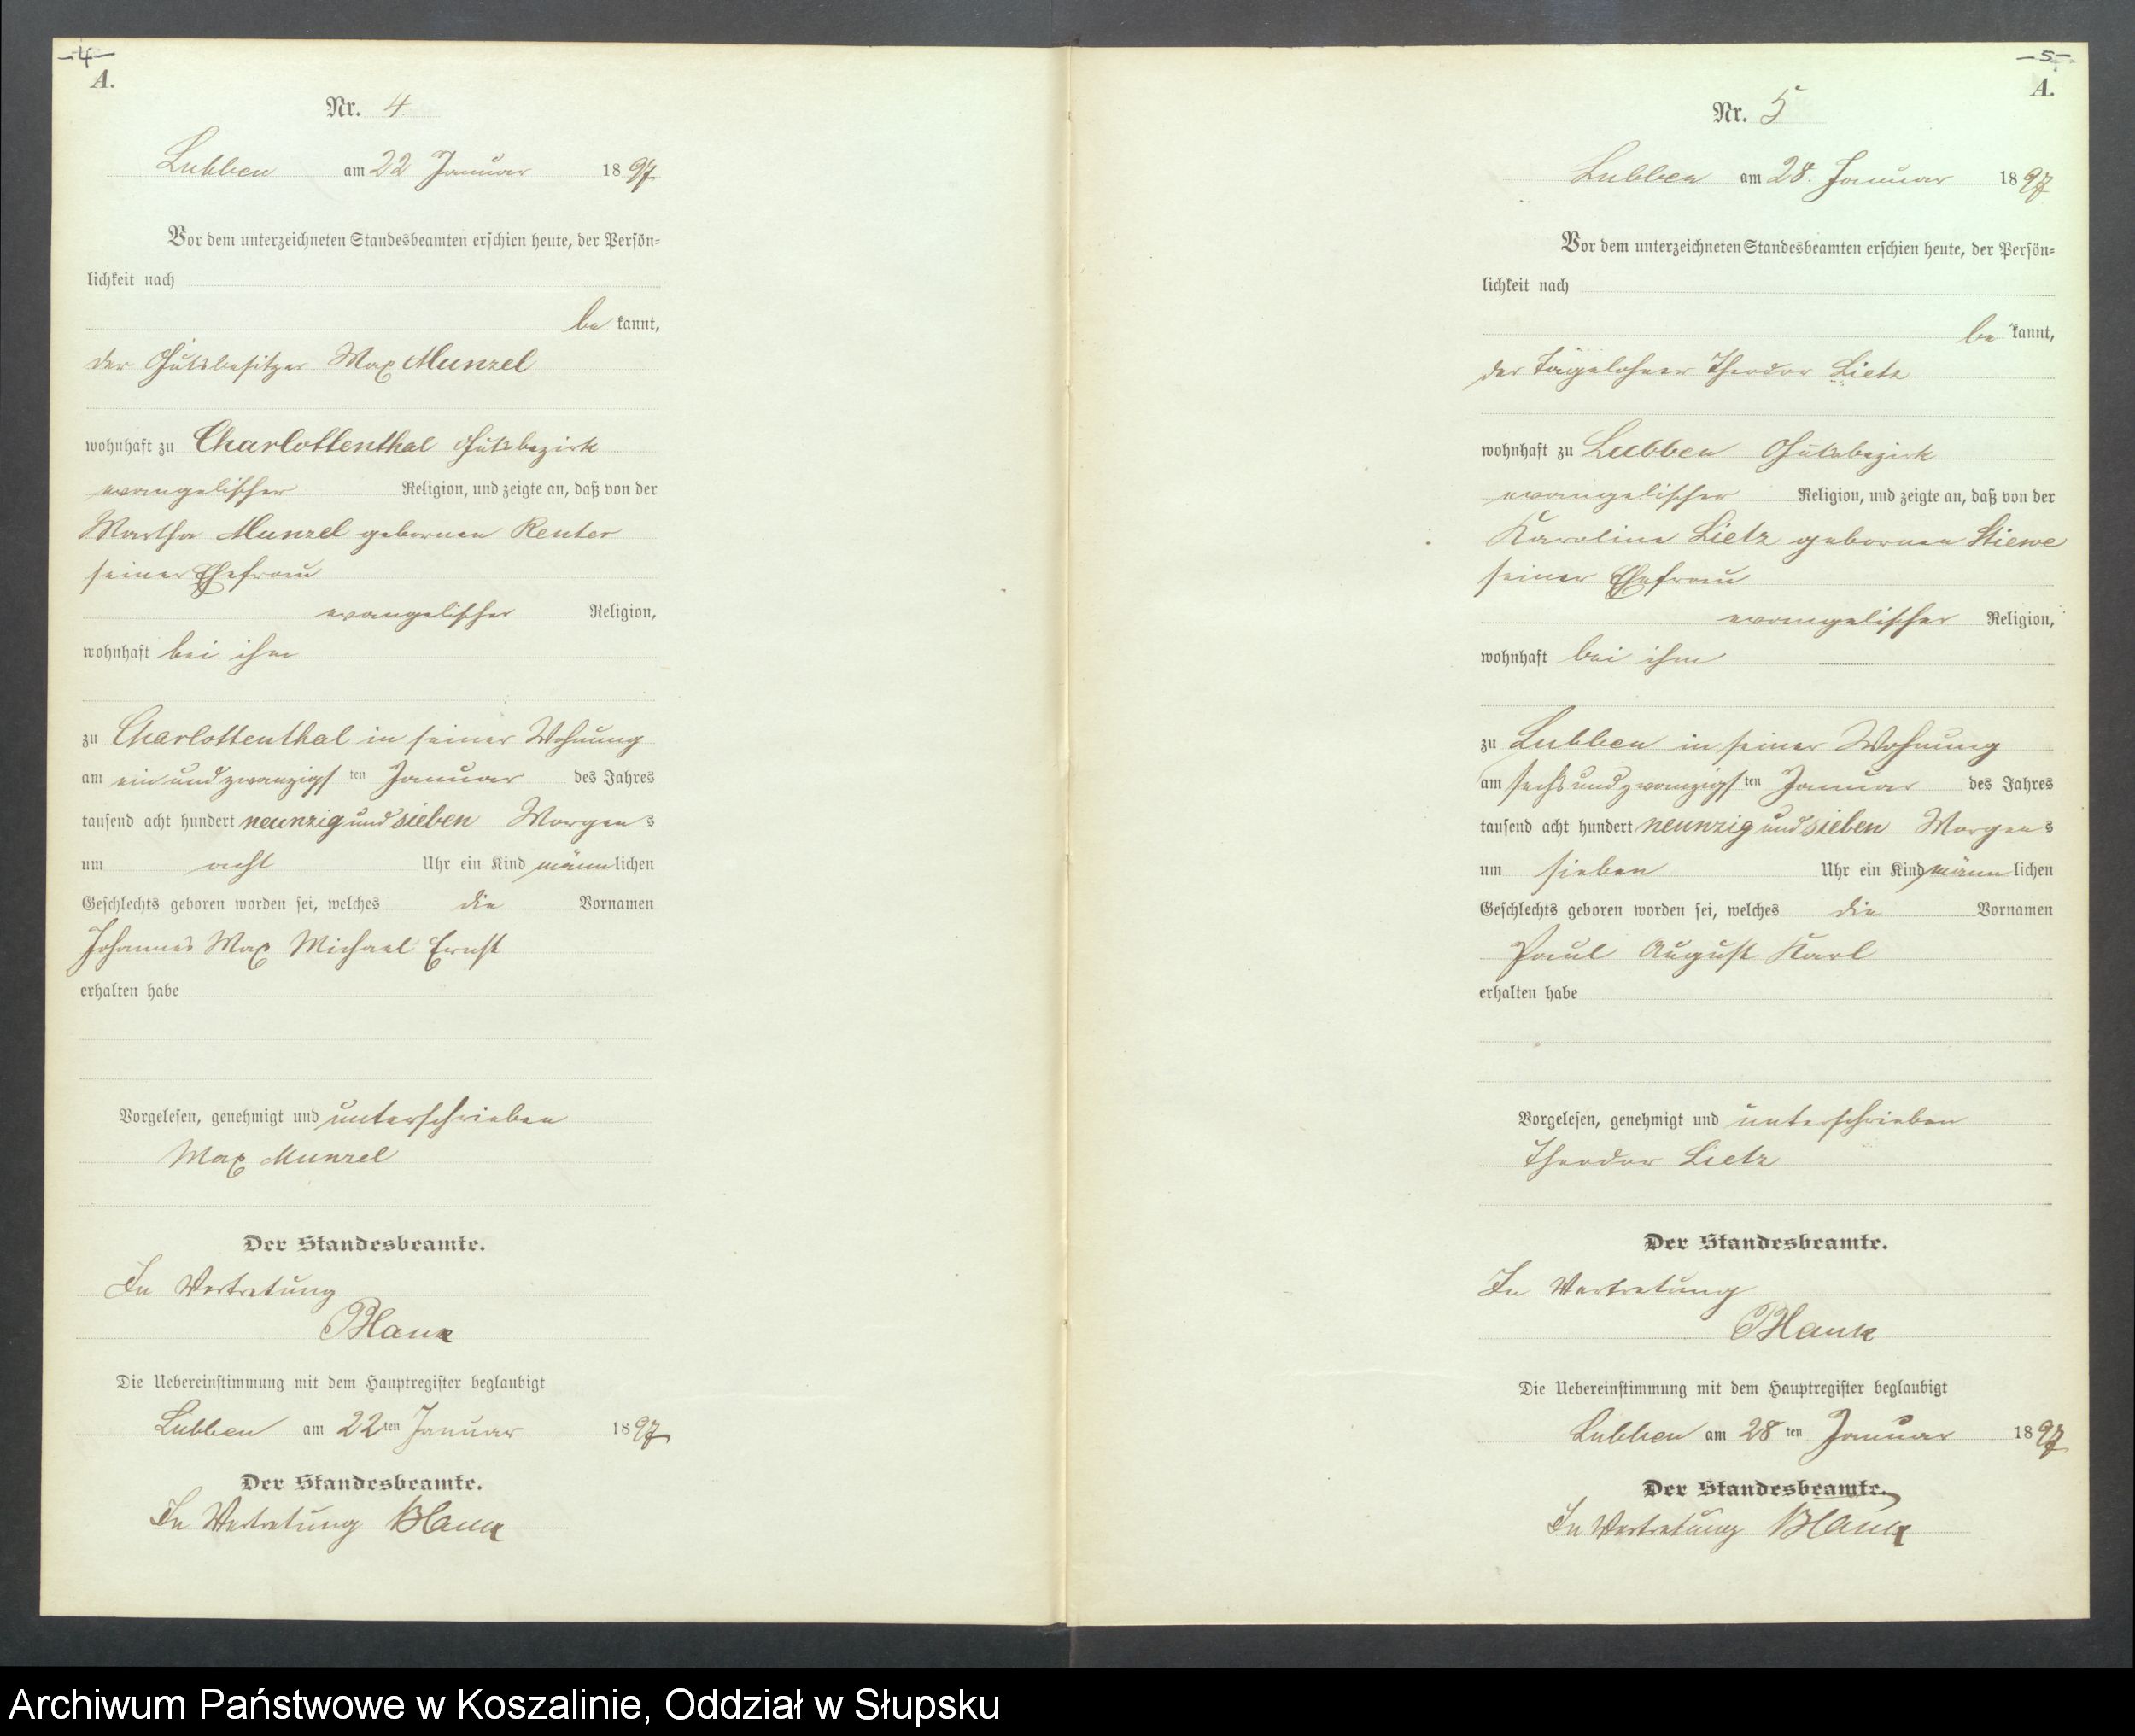 -4-
A.
Nr. 4
Lubben am 22 Januar 1897
Vor dem unterzeichneten Standesbeamten erschien heute, der Persön-
lichkeit nach
be kannt,
der Gutsbesitzer Max Munzel
wohnhaft zu Charlottenthal Gutsbezirk
evangelischer Religion, und zeigte an, daß von der
Martha Munzel gebornen Reuter
seiner Ehefrau
evangelischer Religion,
wohnhaft bei ihm
zu Charlottenthal in seiner Wohnung
am ein und zwanzigs ten Januar des Jahres
tausend acht hundert neunzig und sieben Morgens
um acht Uhr ein Kind männlichen
Geschlechts geboren worden sei, welches die Vornamen
Johannes Max Michael Ernst
erhalten habe
Vorgelesen, genehmigt und unterschrieben
Max Munzel
Der Standesbeamte.
In Vertretung
Blank
Die Uebereinstimmung mit dem Hauptregister beglaubigt
Lubben am 22ten Januar 1897
Der Standesbeamte.
In Vertretung Blank
-5-
A.
Nr. 5
Lubben am 28. Januar 1897
Vor dem unterzeichneten Standesbeamten erschien heute, der Persön-
lichkeit nach
be kannt,
der Tagelohner Theodor Lietz
wohnhaft zu Lubben Gutsbezirk
evangelischer Religion, und zeigte an, daß von der
Karoline Lietz gebornen Stiewe
seiner Ehefrau
evangelischer Religion,
wohnhaft bei ihm
zu Lubben in seiner Wohnung
am sechs und zwanzigs ten Januar des Jahres
tausend acht hundert neunzig und sieben Morgens
um sieben Uhr ein Kind männlichen
Geschlechts geboren worden sei, welches die Vornamen
Paul August Karl
erhalten habe
Vorgelesen, genehmigt und unterschrieben
Theodor Lietz
Der Standesbeamte.
In Vertretung
Blank
Die Uebereinstimmung mit dem Hauptregister beglaubigt
Lubben am 28ten Januar 1897
Der Standesbeamte.
In Vertretung Blank
Archiwum Państwowe w Koszalinie, Oddział w Słupsku